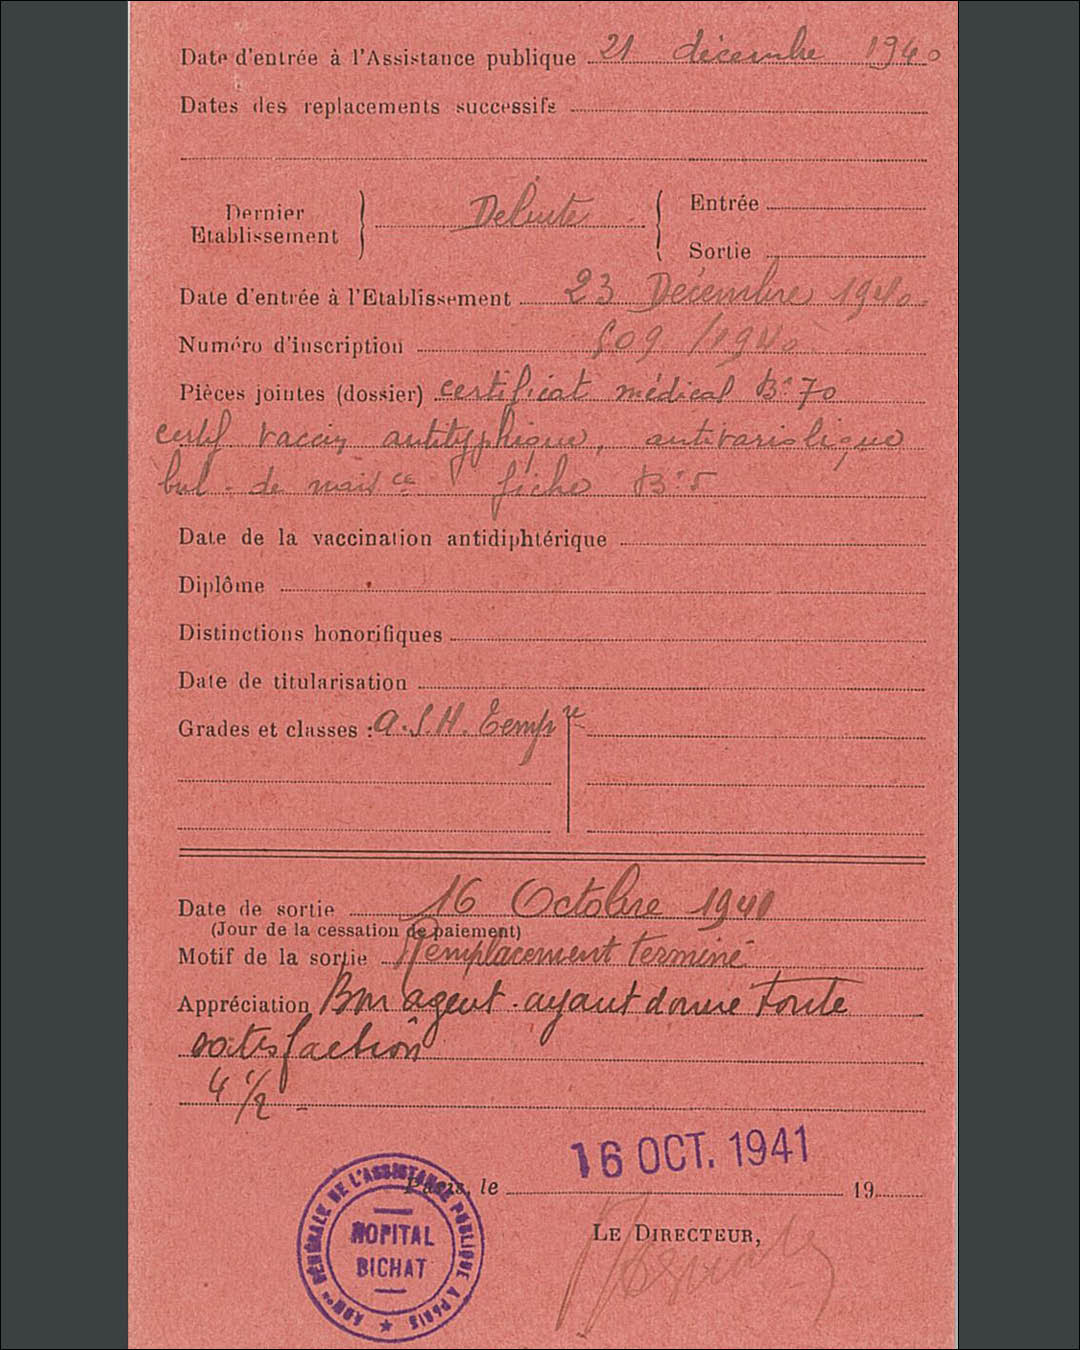 Date d'entrée à l'Assistance publique 21 décembre 1940
Dates des replacements successifs
Dernier Etablissement } Débute { Entrée
Sortie
Date d'entrée à l'Etablissement 23 Décembre 1940
Numéro d'inscription 509 /1940
Pièces jointes (dossier) certificat médical B: 70
certif vaccin antityphique, antivariolique
bul - de naisce fiche B: 5
Date de la vaccination antidiphtérique
Diplôme
Distinctions honorifiques
Date de titularisation
Grades et classes : A.S.H. Tempre
Date de sortie 16 Octobre 1941
(Jour de la cessation de paiement)
Motif de la sortie Remplacement terminé
Appréciation Bon agent - ayant donné toute
satisfaction
4 1/2 -
16 OCT. 1941
Paris, le 19
LE DIRECTEUR,
ADMon GÉNÉRALE DE L'ASSISTANCE PUBLIQUE A PARIS
HOPITAL
BICHAT